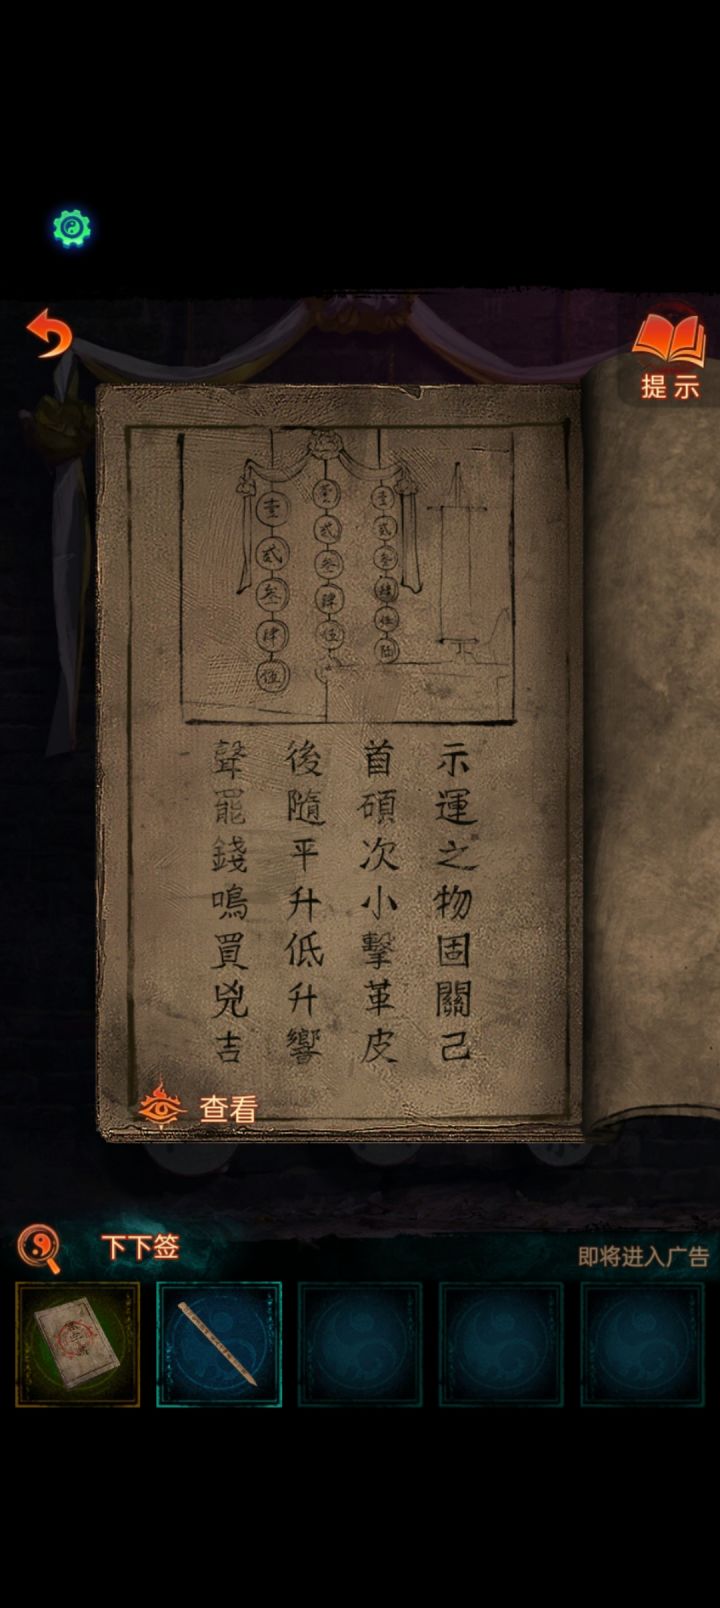 提示
壹 貳 叁 肆 伍
壹 貳 叁 肆 伍
壹 貳 叁 肆 伍 陆
示運之物固關己
首碩次小擊革皮
後隨平升低升響
聲罷錢鳴買兇吉
查看
下下签
即将进入广告